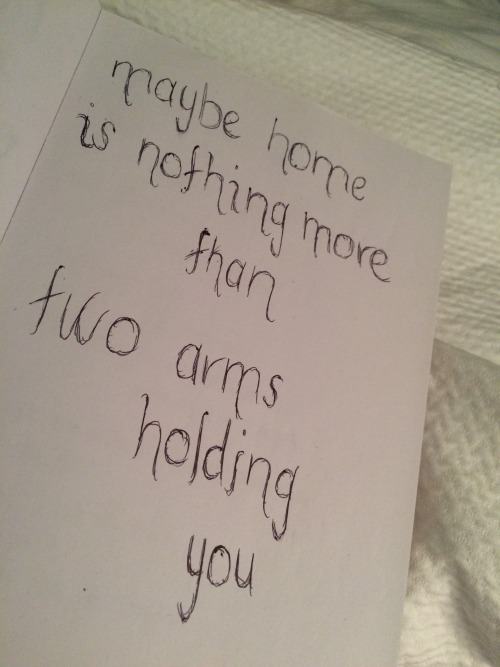 maybe home
is nothing more
than
two arms
holding
you